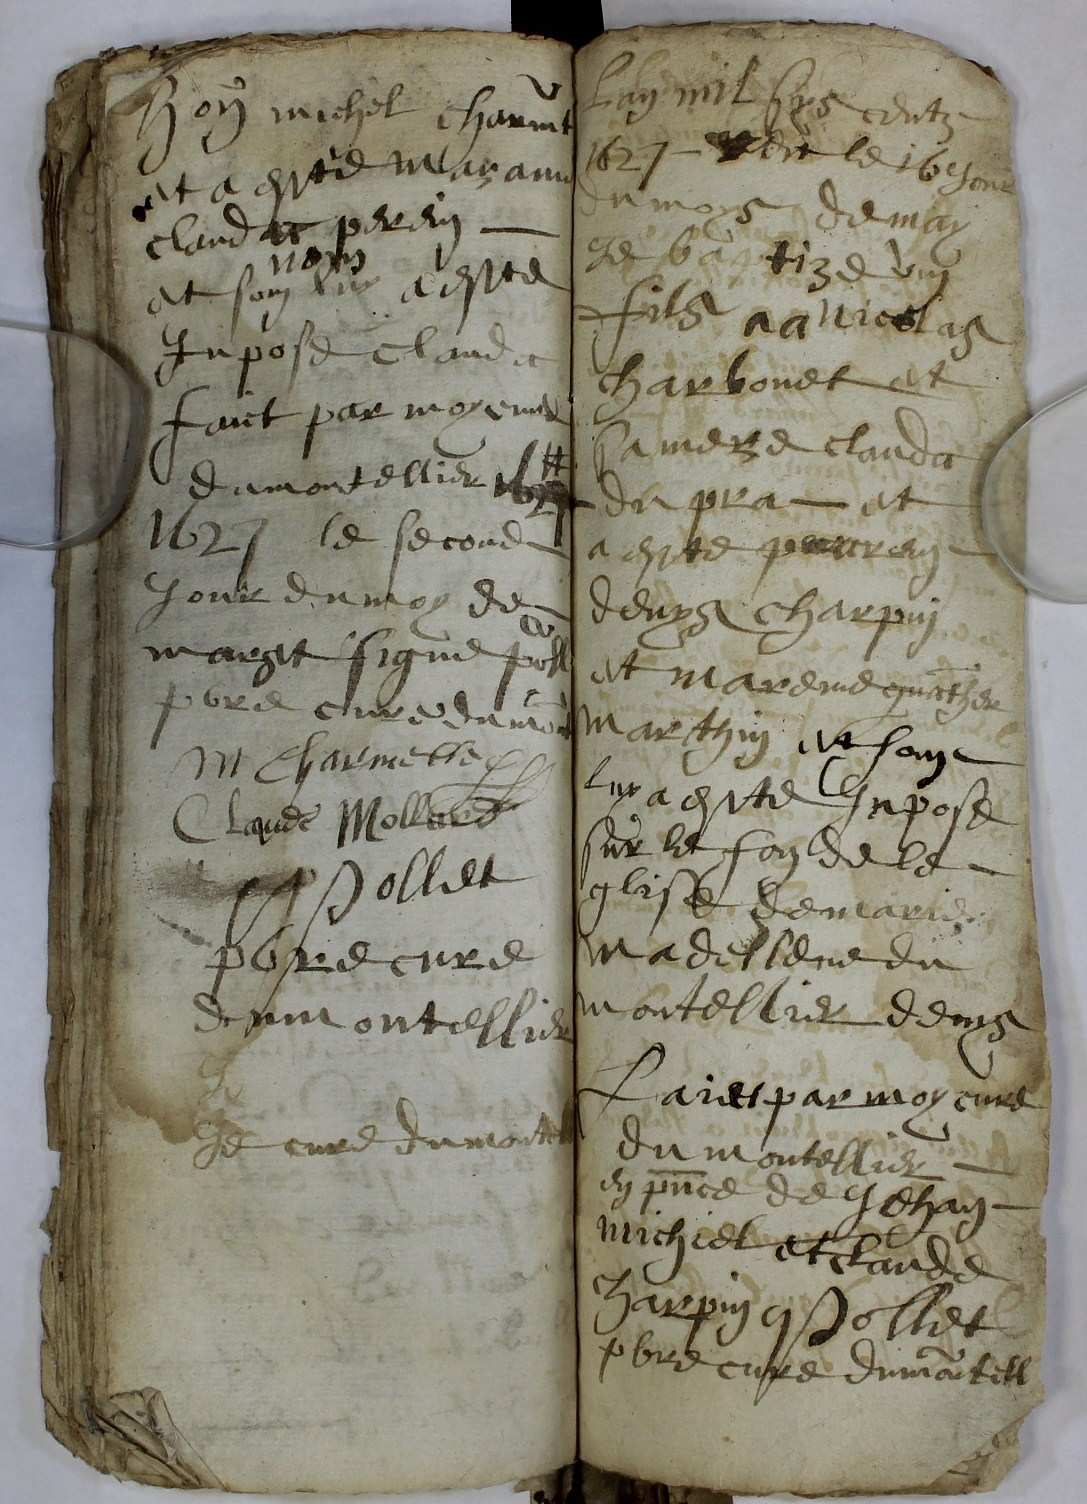 hon michel charmet
et a este maranne
claudae perrin
et son nom luy a este
Inpose claudae
faict par moy cure
du montellier 1627
1627 le second
Jour du moy de
marst signe poll
pbre cure du mont
M Charmette
Claude Mollard
Pollet
pbre cure
du montellier
Je
Je cure du montel
Lan mil sys centz
1627 et dit le 16e Jour
du moys de may
Je baptize ung
fils a a nicolas
charbonet et
sa mere claudae
du pra et
a este parrein
denys charpin
et mareine
Marthin et son
luy a este Inpose
sur le fon de le
glise de marie
madellene du
montellier denys
Faict par moy cure
du montellier
en pnce de Jehan
michiel et claude
charpin Pollet
pbre cure du montell